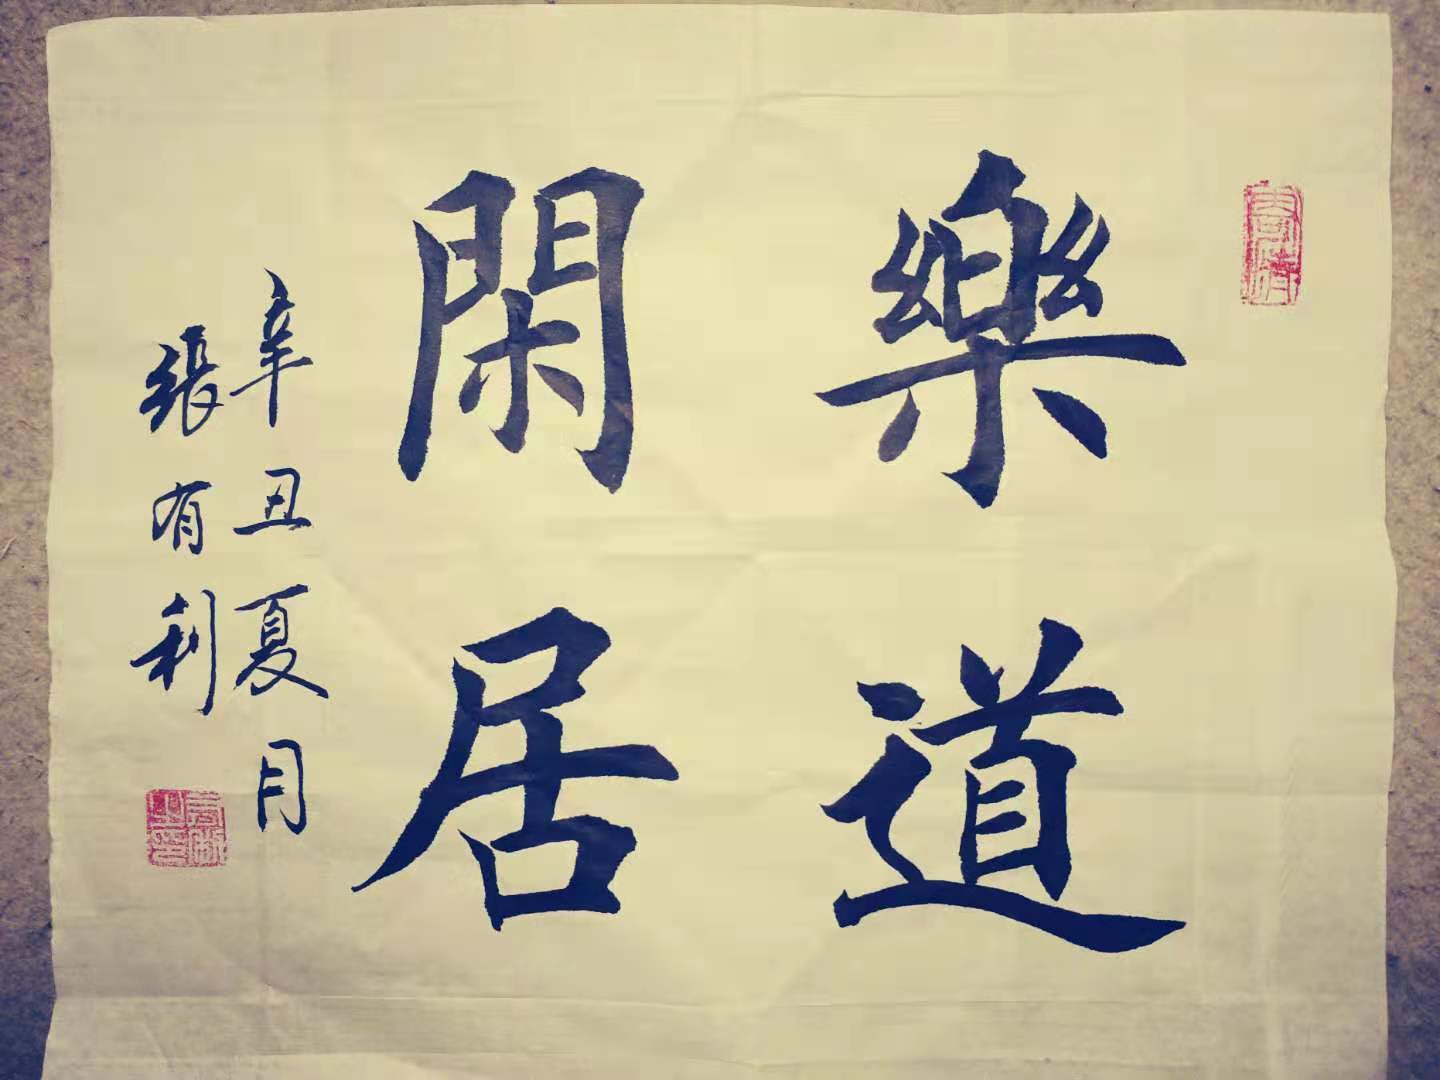 樂道
閑居
辛丑夏月
張有利